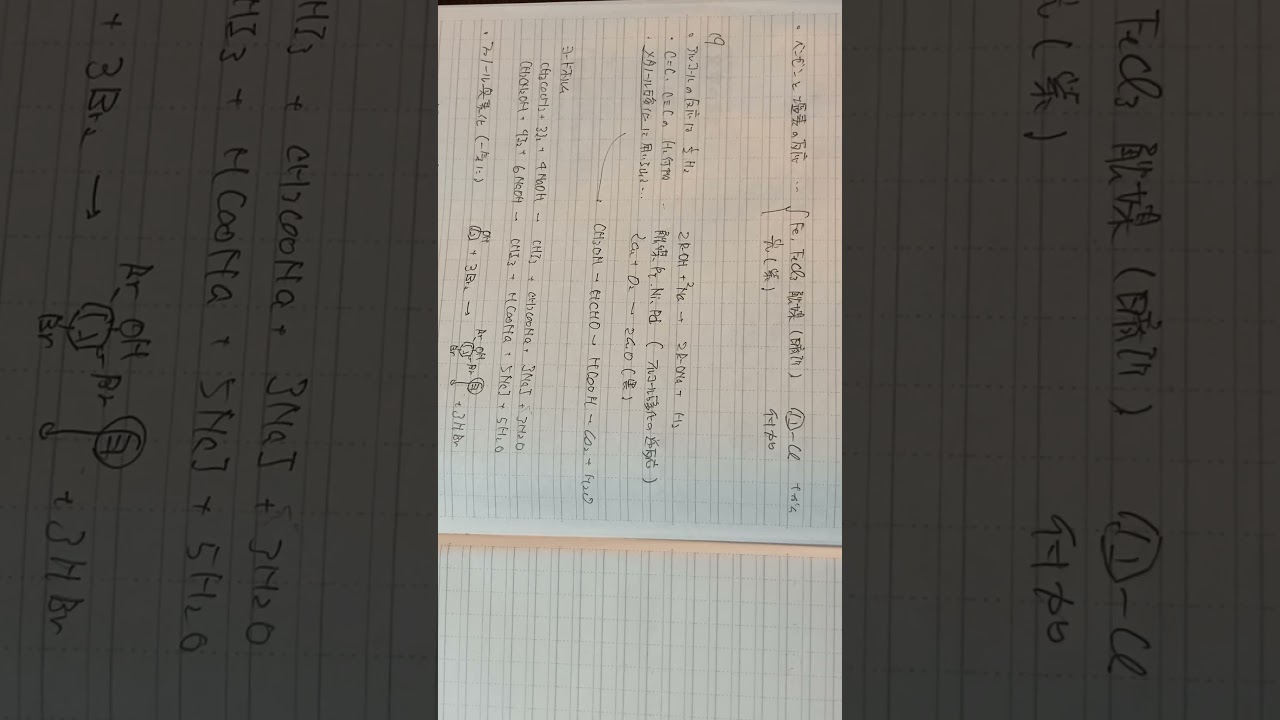 ・ベンゼンと塩素の反応 … Fe, FeCl₃ 触媒 (置換) -Cl + HCl
光(紫) 付加
(9)
・アルコールの反応は ½H₂ 2ROH + 2Na → 2RONa + H₂
・C=C, C≡Cの H₂付加 … 触媒 Pt, Ni, Pd
・メタノール 2Cu + O₂ → 2CuO(黒)
CH₃OH → HCHO → HCOOH → CO₂ + H₂O
ヨードホルム
CH₃COCH₃ + 3I₂ + 4NaOH → CHI₃ + CH₃COONa + 3NaI + 3H₂O
CH₃CH₂OH + 4I₂ + 6NaOH → CHI₃ + HCOONa + 5NaI + 5H₂O
・フェノール臭素化 OH + 3Br₂ → Br OH Br Br 白 + 3HBr